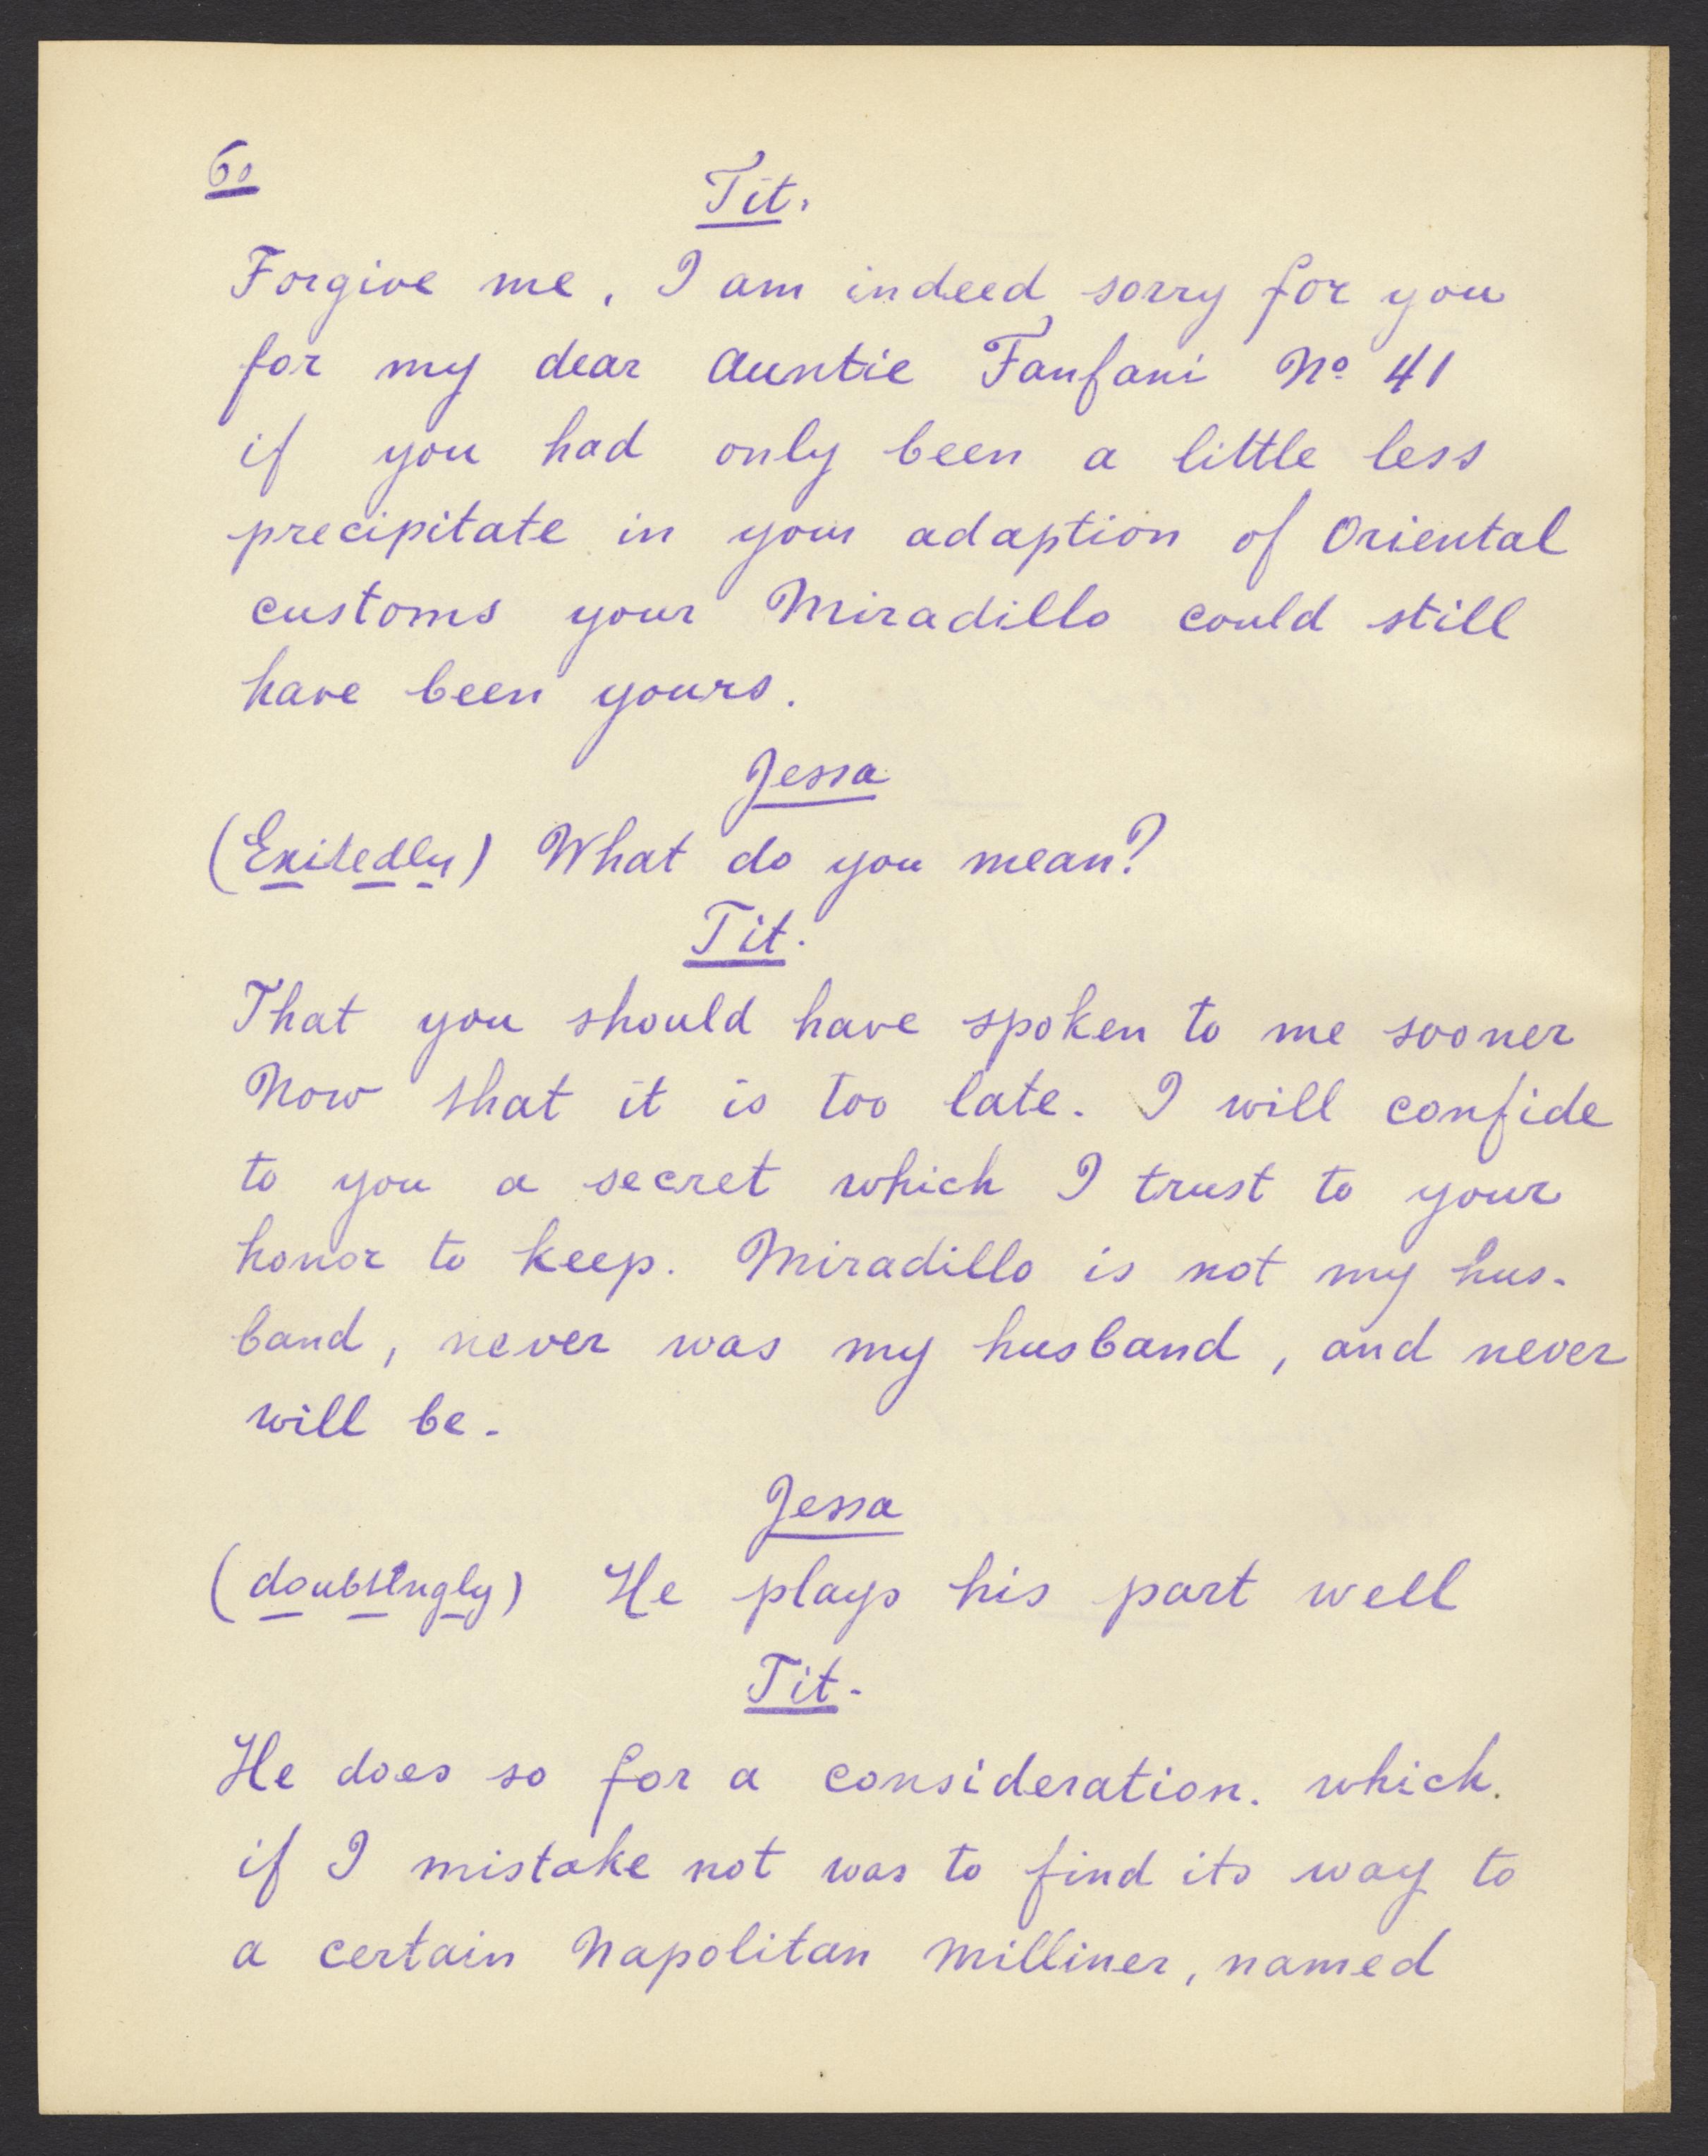 60
Tit.
Forgive me, I am indeed sorry for you
for my dear Auntie Fanfani No 41
if you had only been a little less
precipitate in your adaption of Oriental
customs your Miradillo could still
have been yours.
Jessa
(Exitedly) What do you mean?
Tit.
That you should have spoken to me sooner
Now that it is too late. I will confide
to you a secret which I trust to your
honor to keep. Miradillo is not my hus-
band, never was my husband, and never
will be.
Jessa
(doubtingly) He plays his part well
Tit.
He does so for a consideration. which.
if I mistake not was to find its way to
a certain Napolitan Milliner, named